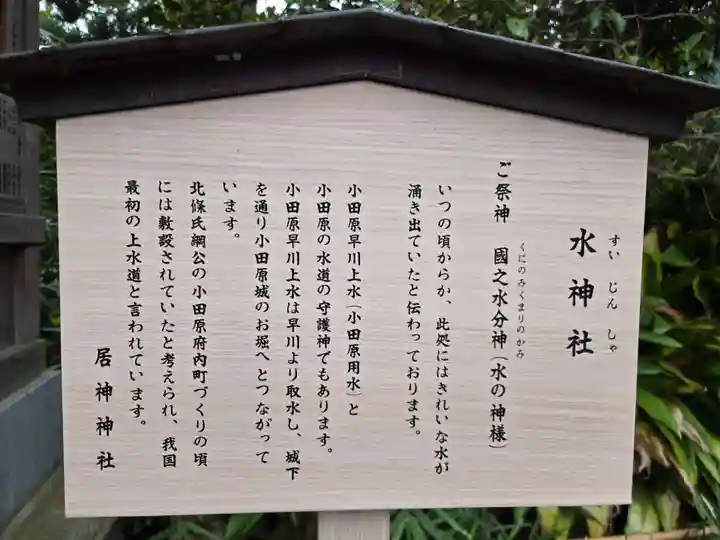 水神社
すいじんしゃ
ご祭神 國之水分神(水の神様)
くにのみくまりのかみ
いつの頃からか、此処にはきれいな水が
涌き出ていたと伝わっております。
小田原早川上水(小田原用水)と
小田原の水道の守護神でもあります。
小田原早川上水は早川より取水し、城下
を通り小田原城のお堀へとつながって
います。
北條氏綱公の小田原府内町づくりの頃
には敷設されていたと考えられ、我国
最初の上水道と言われています。
居神神社